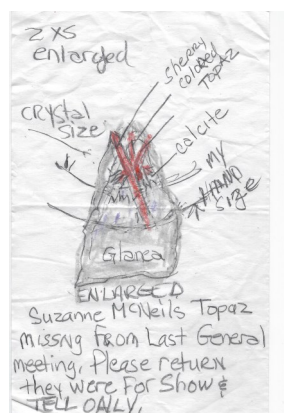 2 X5
enlarged
sherry
colored
Topaz
CRYSTAL
SIZE
calcite
MY
HAND
Size
Glanea
ENLARGED
Suzanne McNeils Topaz
missng From Last General
meeting, Please return
they were For Show &
TELL ONLY.